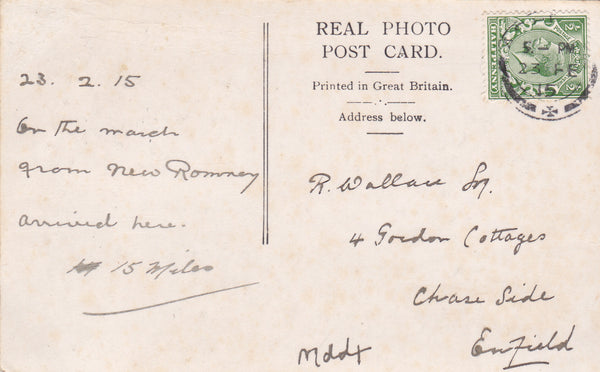 REAL PHOTO
POST CARD.
Printed in Great Britain.
Address below.
23. 2. 15
On the march
from New Romney
arrived here.
15 Miles
R. Wallace
4 Gordon Cottages
Chase Side
Enfield
Mddx
HALFPENNY
5 - PM
FE
15